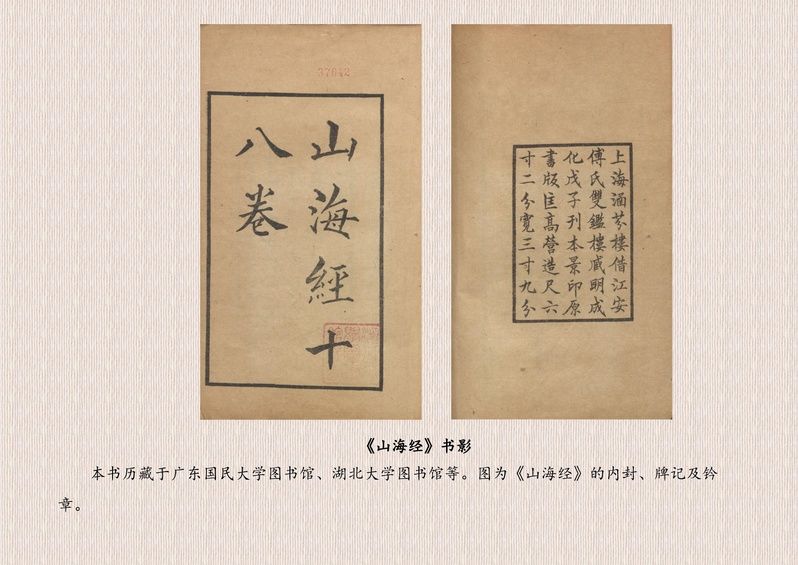 37642
山海經十
八卷
上海涵芬樓借江安
傅氏雙鑑樓臧明成
化戊子刊本景印原
書版匡高營造尺六
寸二分寬三寸九分
《山海经》书影
本书历藏于广东国民大学图书馆、湖北大学图书馆等。图为《山海经》的内封、牌记及钤
章。